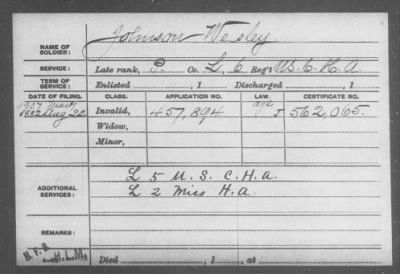 Johnson Wesley
NAME OF SOLDIER:
SERVICE: Late rank, P. Co. L, 6 Reg't U.S.C.H.A
TERM OF SERVICE: Enlisted , 1 Discharged , 1
DATE OF FILING. CLASS. APPLICATION NO. LAW. CERTIFICATE NO.
1907
1882 Aug 22 Invalid, 457,894 age J 562,065.
Widow,
Minor,
ADDITIONAL SERVICES: L 5 U.S. C.H.A.
L 2 Miss H.A.
REMARKS:
Died , 1 , at